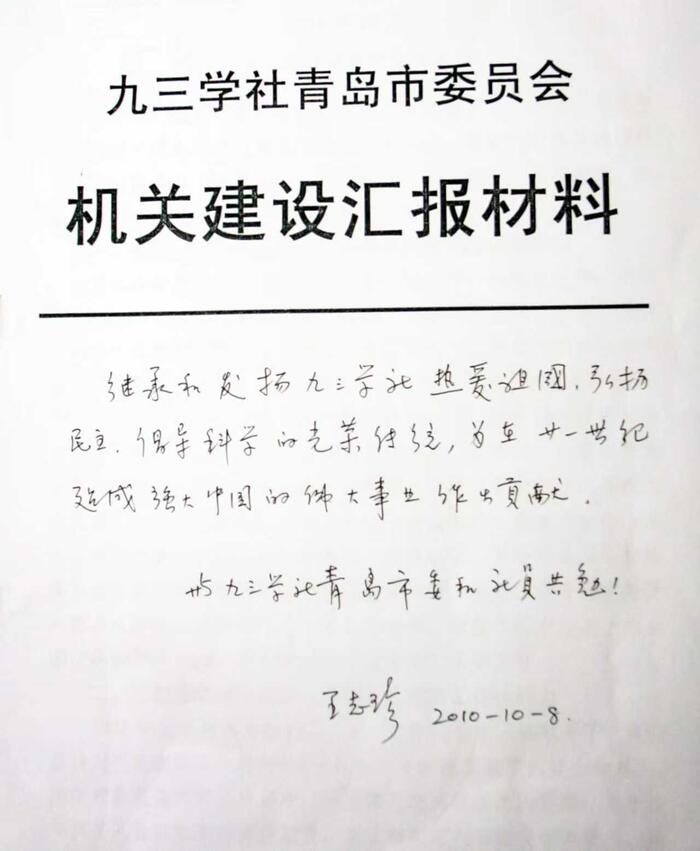 九三学社青岛市委员会
机关建设汇报材料
继承和发扬九三学社热爱祖國、弘扬
民主、倡导科学的光荣传统，为在廿一世纪
造成强大中国的伟大事业作出贡献．
与九三学社青岛市委和社员共勉！
王志珍 2010-10-8.